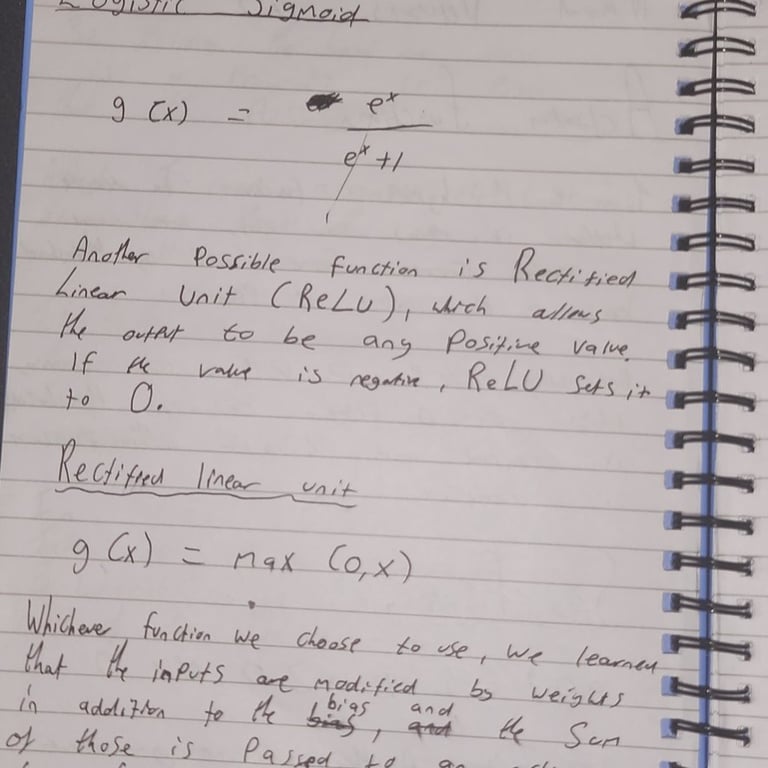 Logistic Sigmoid
g (x) = e^x / e^x + 1
Another Possible function is Rectified
Linear Unit (ReLU), which allows
the output to be any Positive value.
If the value is negative, ReLU sets it
to 0.
Rectified linear unit
g (x) = max (0, x)
Whichever function we choose to use, we learned
that the inputs are modified by weights
in addition to the bias, and the Sum
of those is Passed to an